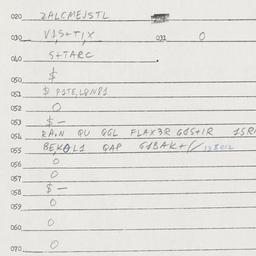 020 ZALCMEJSTL
030 V1S+TIX 031 0
040 S+TARC
050 $
051 $ P1TE,LQNP1
052 0
053 $-
054 ZA,N QU QGL FLAX3R G1S+IR
055 BEK0L1 QAP G1BAK+
056 0
057 0
058 $-
059 0
060 0
070 0